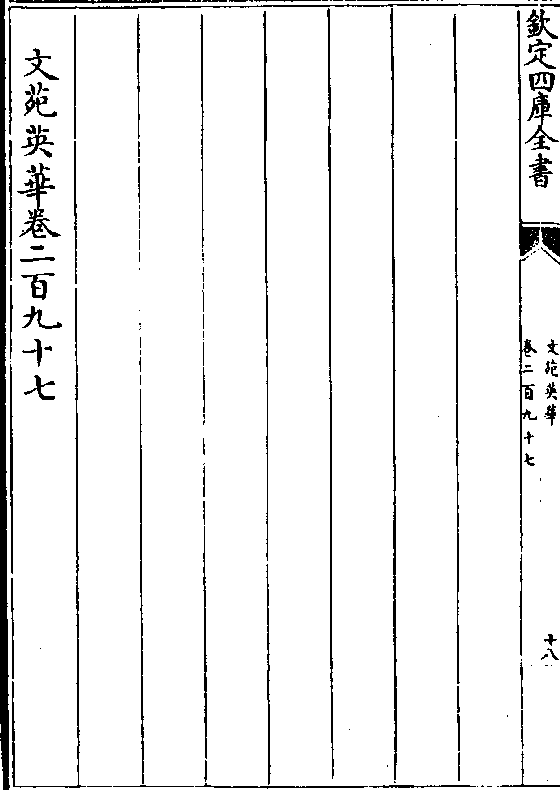 欽定四庫全書
文苑英華
卷二百九十七
十八
文苑英華卷二百九十七